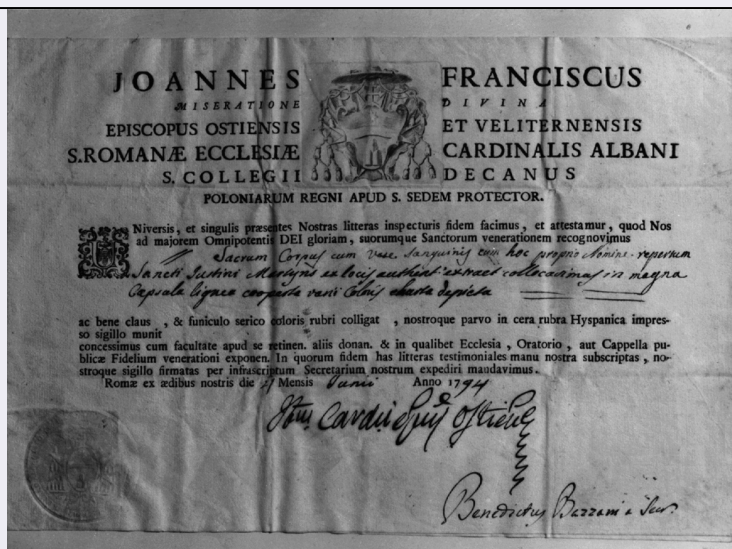 JOANNES FRANCISCUS
MISERATIONE DIVINA
EPISCOPUS OSTIENSIS ET VELITERNENSIS
S. ROMANÆ ECCLESIÆ CARDINALIS ALBANI
S. COLLEGII DECANUS
POLONIARUM REGNI APUD S. SEDEM PROTECTOR.
UNiversis, et singulis præsentes Nostras litteras inspecturis fidem facimus, et attestamur, quod Nos
ad majorem Omnipotentis DEI gloriam, suorumque Sanctorum venerationem recognovimus
Sacrum Corpus cum vase Sanguinis cum hoc proprio Nomine repertum
Sancti Justini Martyris ex locis authent extract collocavimus in magna
Capsula lignea cooperta varii Coloris charta depicta
ac bene claus , & funiculo serico coloris rubri colligat , nostroque parvo in cera rubra Hyspanica impres-
so sigillo munit
concessimus cum facultate apud se retinen. aliis donan. & in qualibet Ecclesia, Oratorio, aut Cappella pu-
blicæ Fidelium venerationi exponen. In quorum fidem has litteras testimoniales manu nostra subscriptas, no-
stroque sigillo firmatas per infrascriptum Secretarium nostrum expediri mandavimus.
Romæ ex ædibus nostris die Mensis Junii Anno 1794
Cardlis Epus Ostiens
Benedictus